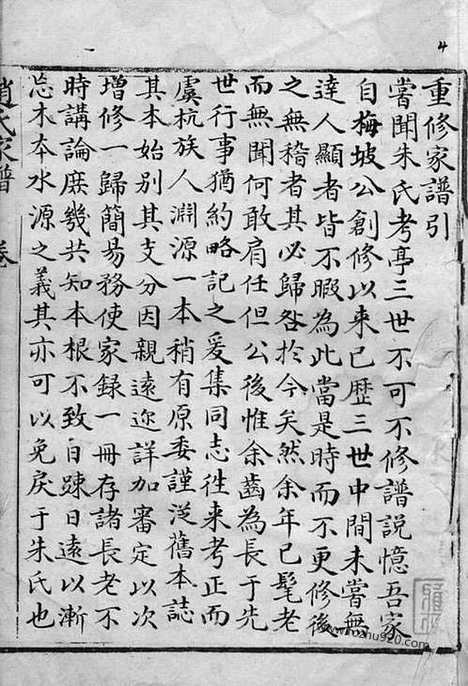 重修家譜引
嘗聞朱氏考亭三世不可不修譜說憶吾家
自梅坡公創修以来已歷三世中間未嘗無
達人顯者皆不暇為此當是時而不更修後
之無稽者其必歸咎扵今矣然余年已髦老
而無聞何敢肩任但公後惟余齒為長于先
世行事猶約略記之爰集同志徃来考正而
虞杭族人淵源一本稍有原委謹從舊本誌
其本始别其支分因親遠迩詳加審定以次
增修一歸簡易務使家録一冊存諸長老不
時講論庶幾共知本根不致日踈日遠以漸
忘木本水源之義其亦可以免戾于朱氏也
趙氏家譜 卷
4